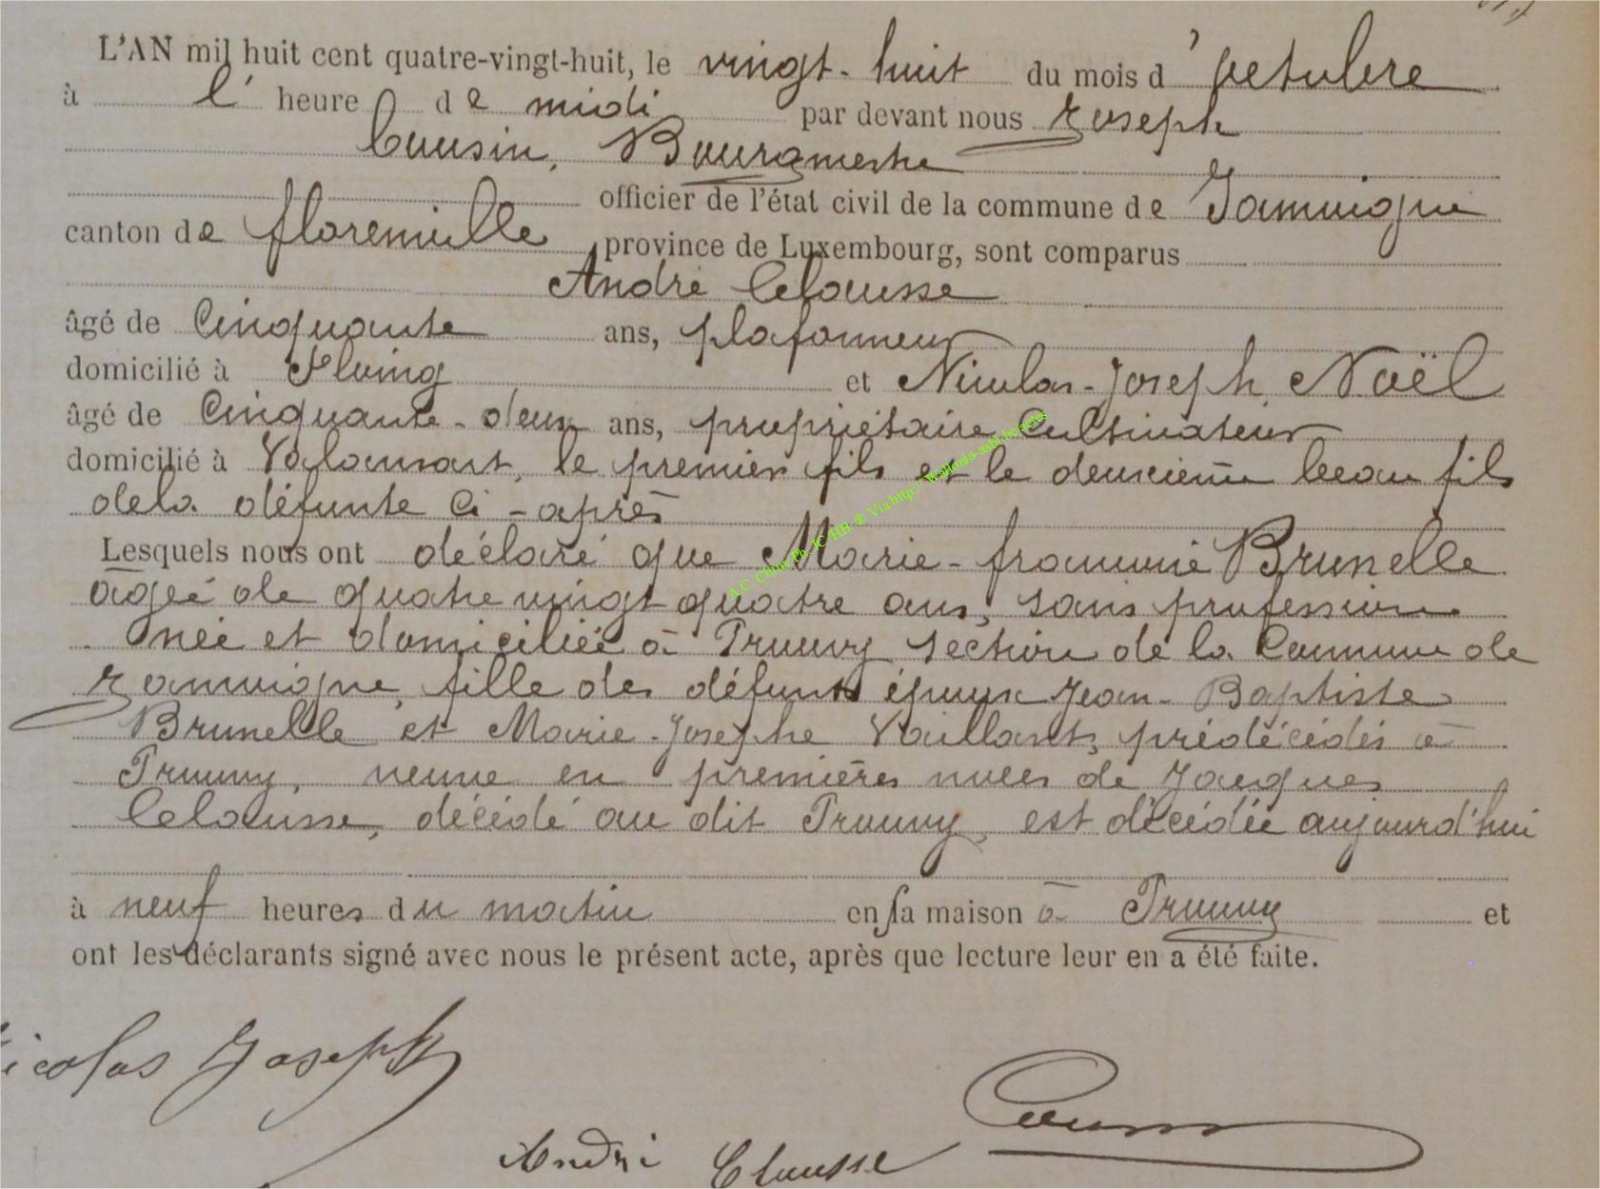 L'AN mil huit cent quatre-vingt-huit, le vingt-huit du mois d'octobre
à l' heure de midi par devant nous Joseph
Cousin, Bourgmestre
officier de l'état civil de la commune de Jamoigne
canton de florenville province de Luxembourg, sont comparus
André Clausse
âgé de Cinquante ans, plafonneur
domicilié à Floing et Nicolas-Joseph Noël
âgé de Cinquante-deux ans, propriétaire Cultivateur
domicilié à Valansart, le premier fils et le deuxième beau fils
de la défunte Ci-après
Lesquels nous ont déclaré que Marie-françoise Brunelle
âgée de quatre vingt quatre ans, sans profession
née et domiciliée à Prouvy section de la Commune de
Jamoigne, fille des défunts époux Jean-Baptiste
Brunelle et Marie-Josephe Vaillant, prédécédés à
Prouvy, veuve en premières noces de Jacques
Clausse, décédé au dit Prouvy, est décédée aujourd'hui
à neuf heures du matin en sa maison à Prouvy et
ont les déclarants signé avec nous le présent acte, après que lecture leur en a été faite.
icolas Joseph
Cousin
André Clausse